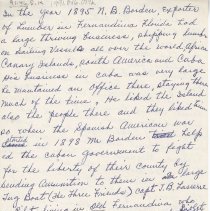 In the year 1895 N. B. Borden, exporter
of lumber in Fernandina Florida had
a thriving business, shipping lumber
on sailing vessels all over the world, Africa
Canary Islands, South America and Cuba
His business in Cuba was very large
He maintained an office there, staying there
much of the time. He liked the Island
also the people there and they liked him
so when the Spanish American war
in 1898 Mr Borden helped
the Cuban government to fight
for the liberty of their country by
sending ammunition to them in a large
Tug Boat (de Three Friends) capt J.B.
living in Old Fernandina who